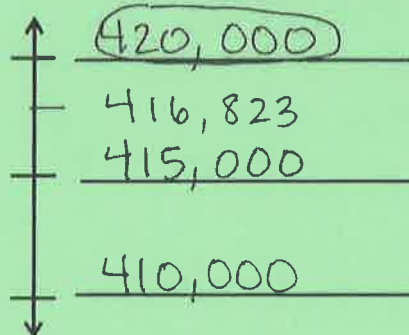 420,000
416,823
415,000
410,000